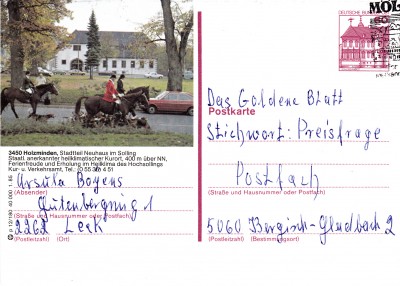 MOL
DEUTSCHE BU
60
3450 Holzminden, Stadtteil Neuhaus im Solling
Staatl. anerkannter heilklimatischer Kurort, 400 m über NN,
Ferienfreude und Erholung im Heilklima des Hochsollings
Kur- u. Verkehrsamt, Tel. (0 55 36) 4 51
Ursula Boyens
(Absender)
Gutenbergring 1
(Straße und Hausnummer oder Postfach)
2262 Leck
(Postleitzahl) (Ort)
Das Goldene Blatt
Postkarte
Stichwort: Preisfrage
Postfach
(Straße und Hausnummer oder Postfach)
5060 Bergisch-Gladbach 2
(Postleitzahl) (Bestimmungsort)